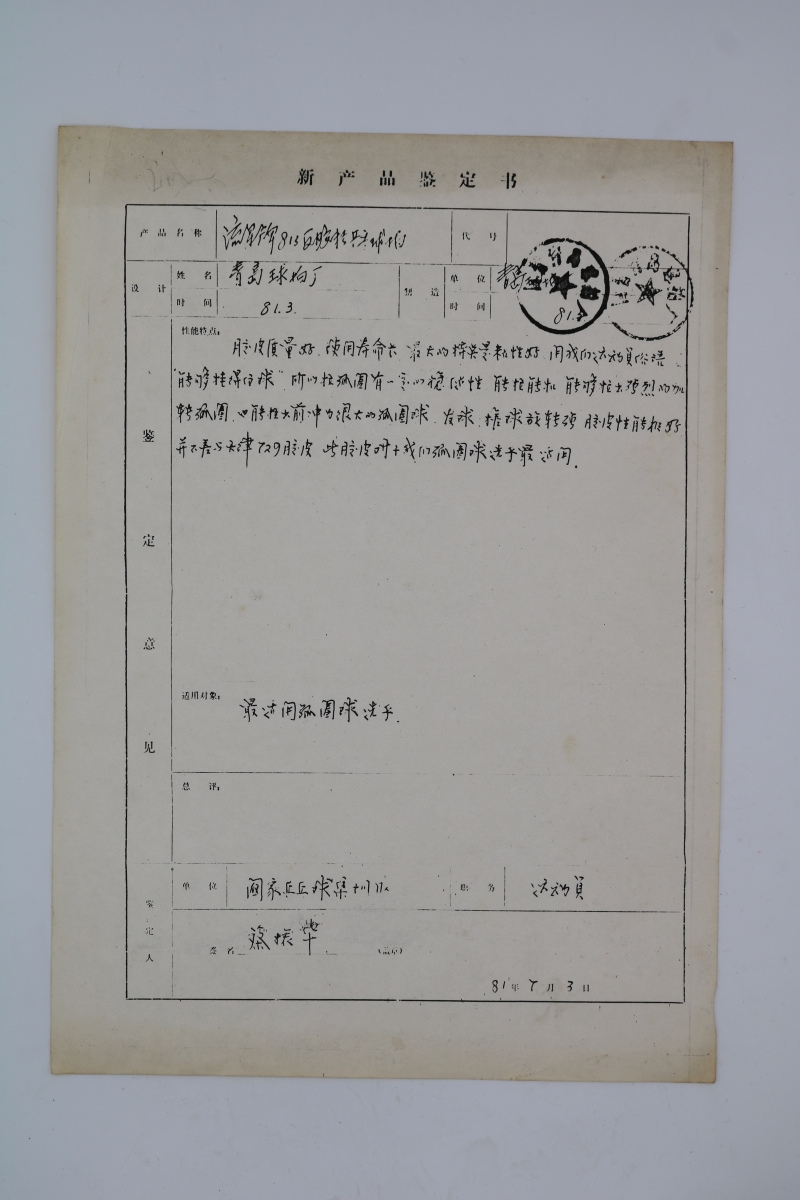 新产品鉴定书
产品名称 流星牌813反胶 球拍 代号
设计 姓名 青岛球拍厂 制造 单位 青岛
时间 81.3. 时间 81.3
鉴定意见
性能特点:
胶皮质量好、使用寿命长 最大的特点是粘性好 用我们运动員俗語
“能够挂得住球” 所以拉弧圈有一定的稳健性 能拉能扣 能够拉出强烈的加
转弧圈,也能拉出前冲力很大的弧圈球、发球、搓球旋转强 胶皮性能极好
并不差与天津729胶皮 此胶皮对于我们弧圈球选手最适用.
适用对象:
最适用弧圈球选手.
总评:
鉴定人
单位 国家乒乓球集训队 职务 运动員
签名 蔡振华 (盖章)
81年 7月 3日